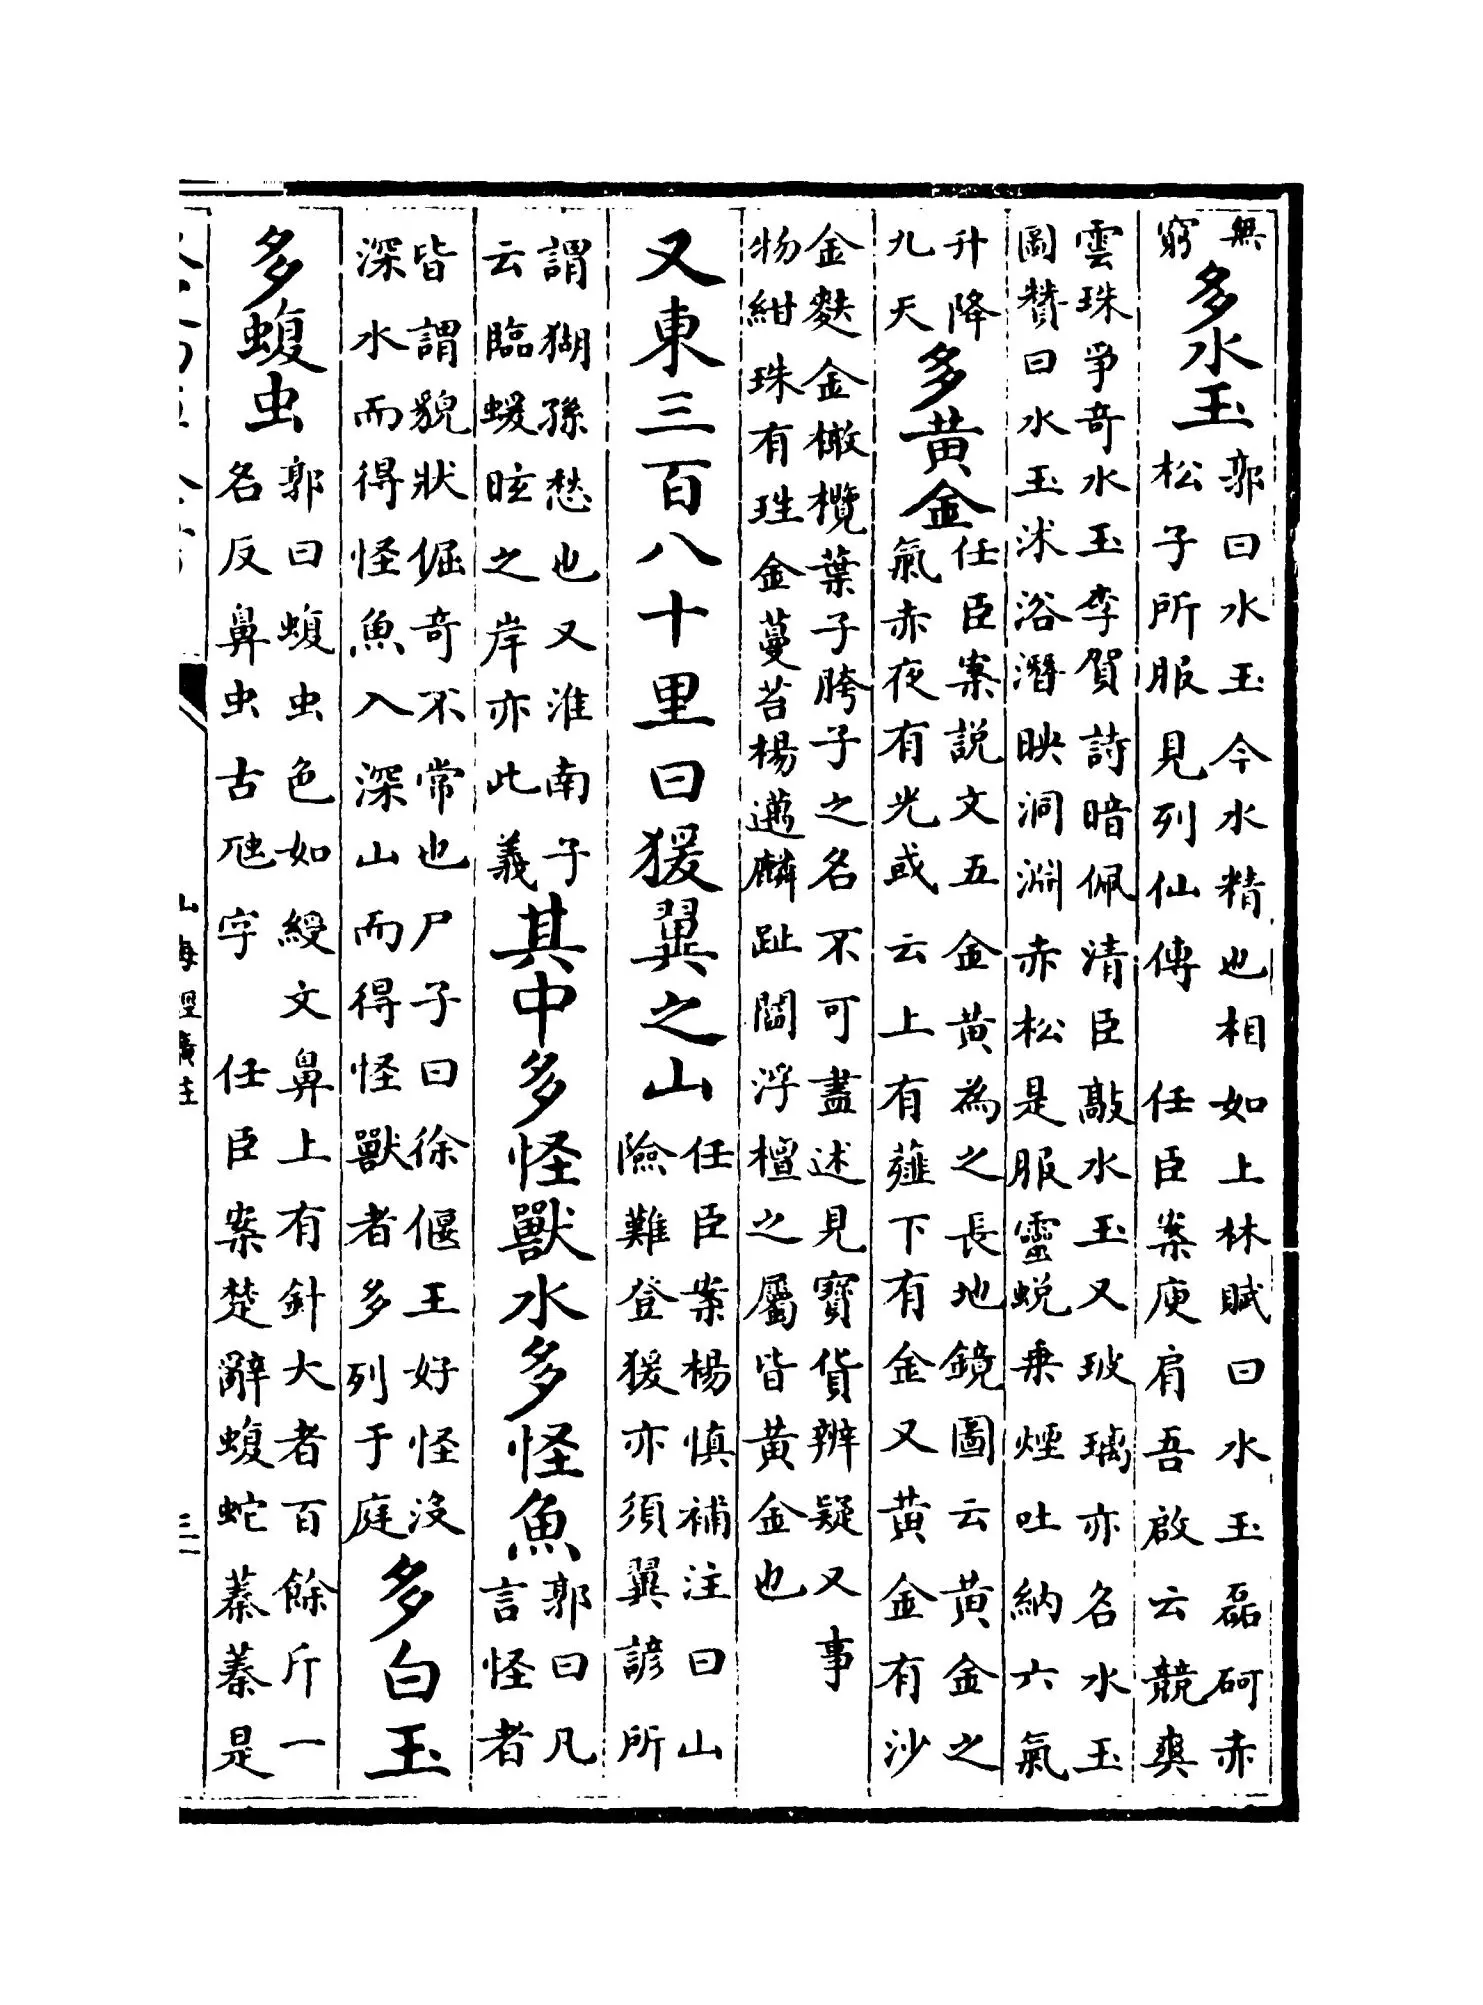 無
窮
多水玉
郭曰水玉今水精也相如上林賦曰水玉磊砢赤
松子所服見列仙傳　任臣案庾肩吾啟云競爽
雲珠爭奇水玉李賀詩暗佩清臣敲水玉又玻璃亦名水玉
圖贊曰水玉沭浴潛映洞淵赤松是服靈蛻乗煙吐納六氣
升降
九天
多黃金
任臣案説文五金黃為之長地鏡圖云黃金之
氣赤夜有光或云上有薤下有金又黃金有沙
金麩金橄欖葉子胯子之名不可盡述見寶貨辨疑又事
物紺珠有珄金蔓苔楊邁麟趾閻浮檀之屬皆黃金也
又東三百八十里曰猨翼之山
任臣案楊慎補注曰山
險難登猨亦須翼諺所
謂猢孫愁也又淮南子
云臨蝯眩之岸亦此義
其中多怪獸水多怪魚
郭曰凡
言怪者
皆謂貌狀倔奇不常也尸子曰徐偃王好怪没
深水而得怪魚入深山而得怪獸者多列于庭
多白玉
多蝮虫
郭曰蝮虫色如綬文鼻上有針大者百餘斤一
名反鼻虫古虺字　任臣案楚辭蝮蛇蓁蓁是
山海經廣注